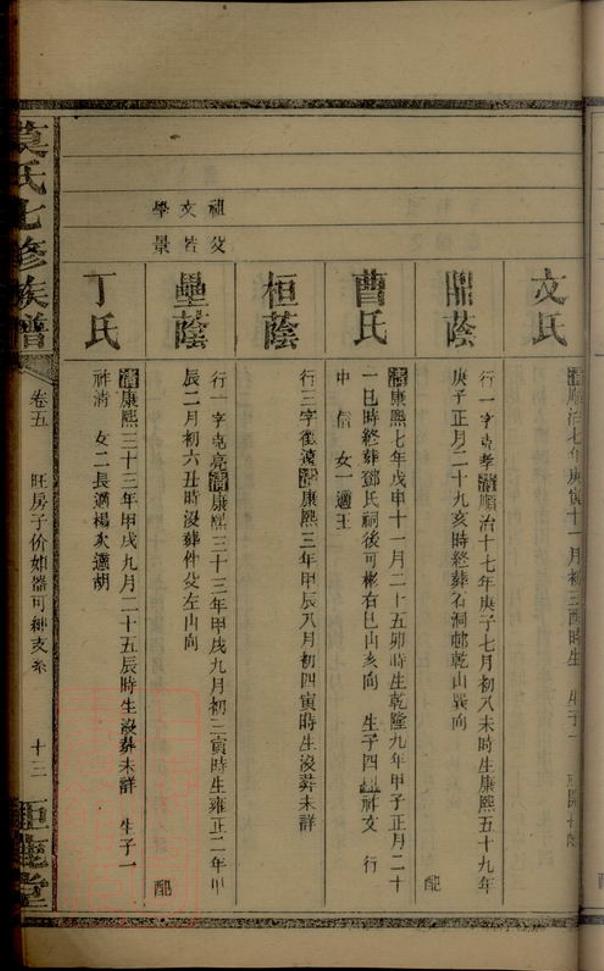 文氏
清順治七年庚寅十一月初三酉時生 生子
鼎蔭
行一字克孝清順治十七年庚子七月初八未時生康熙五十九年
庚子正月二十九亥時終葬石洞邨乾山巽向 配
曹氏
清康熙七年戊申十一月二十五卯時生乾隆九年甲子正月二十
一巳時終葬鄧氏祠後可彬右巳山亥向 生子四 祥文 行
中 信 女一適王
祖父
文
學景
桓蔭
行三字 遠清康熙三年甲辰八月初四寅時生沒葬未詳
壘蔭
行一字克亮清康熙三十三年甲戌九月初三寅時生雍正二年甲
辰二月初六丑時沒葬件父左山向 配
丁氏
清康熙三十三年甲戌九月二十五辰時生沒葬未詳 生子一
祚清 女二長適楊次適胡
莫氏七修族譜
卷五
旺房子价如器可紳支系
十三
鉅鹿堂